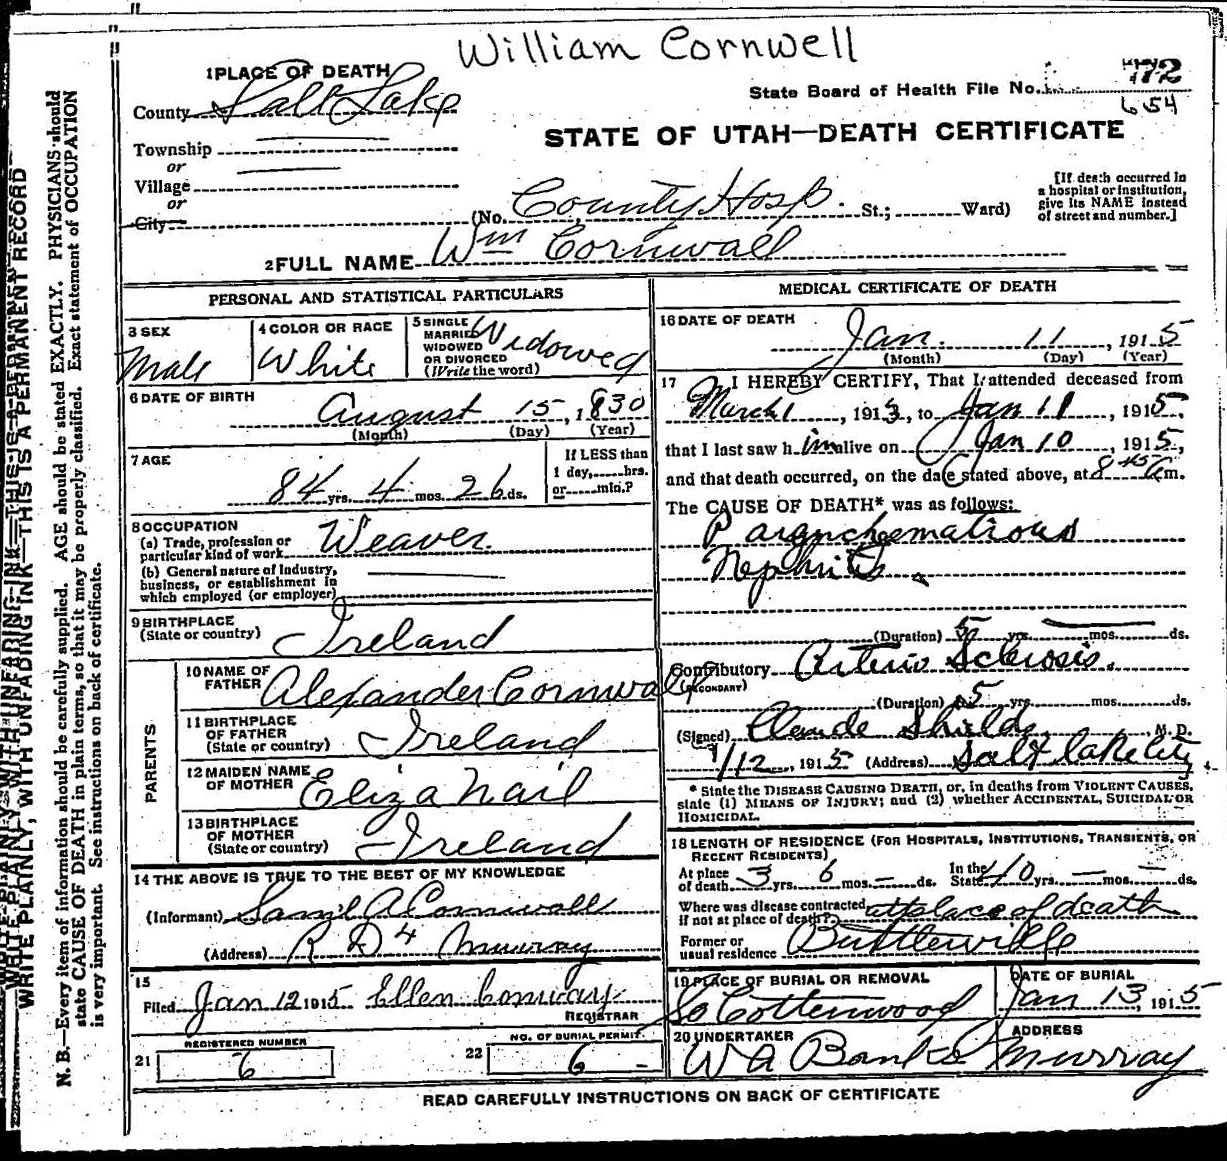 William Cornwell
1 PLACE OF DEATH
County Salt Lake
State Board of Health File No. 72
654
Township
or
Village
or
City
STATE OF UTAH—DEATH CERTIFICATE
(No. County Hosp. St.; Ward)
[If death occurred in
a hospital or institution,
give its NAME instead
of street and number.]
2 FULL NAME Wm Cornwall
PERSONAL AND STATISTICAL PARTICULARS
3 SEX
Male
4 COLOR OR RACE
White
5 SINGLE
MARRIED
WIDOWED
OR DIVORCED
(Write the word)
Widowed
6 DATE OF BIRTH
August 15, 1830
(Month) (Day) (Year)
7 AGE
84 yrs. 4 mos. 26 ds.
If LESS than
1 day,......hrs.
or......min.?
8 OCCUPATION
(a) Trade, profession or
particular kind of work Weaver.
(b) General nature of industry,
business, or establishment in
which employed (or employer)
9 BIRTHPLACE
(State or country) Ireland
PARENTS
10 NAME OF
FATHER Alexander Cornwall
11 BIRTHPLACE
OF FATHER
(State or country) Ireland
12 MAIDEN NAME
OF MOTHER Eliza Nail
13 BIRTHPLACE
OF MOTHER
(State or country) Ireland
14 THE ABOVE IS TRUE TO THE BEST OF MY KNOWLEDGE
(Informant) Saml A Cornwall
(Address) R D 4 Murray
15
Filed Jan 12 1915 Ellen Conway
REGISTRAR
REGISTERED NUMBER
21 6
NO. OF BURIAL PERMIT
22 6 -
MEDICAL CERTIFICATE OF DEATH
16 DATE OF DEATH
Jan. 11, 1915
(Month) (Day) (Year)
17 I HEREBY CERTIFY, That I attended deceased from
March 1, 1913, to Jan 11, 1915,
that I last saw him alive on Jan 10, 1915,
and that death occurred, on the date stated above, at 8 45 a m.
The CAUSE OF DEATH* was as follows:
Parynchematious
Nephritis
(Duration) 5 yrs. mos. ds.
Contributory Arterio Sclerosis.
(SECONDARY)
(Duration) 5 yrs. mos. ds.
(Signed) Claude Shields, M. D.
1/12, 1915 (Address) Salt Lake City
* State the DISEASE CAUSING DEATH, or, in deaths from VIOLENT CAUSES,
state (1) MEANS OF INJURY; and (2) whether ACCIDENTAL, SUICIDAL OR
HOMICIDAL.
18 LENGTH OF RESIDENCE (FOR HOSPITALS, INSTITUTIONS, TRANSIENTS, OR
RECENT RESIDENTS)
At place
of death 3 yrs. 6 mos. - ds.
In the
State 40 yrs. - mos. - ds.
Where was disease contracted
if not at place of death? at place of death
Former or
usual residence Buttlerville
19 PLACE OF BURIAL OR REMOVAL
So Cottenwood
DATE OF BURIAL
Jan 13, 1915
20 UNDERTAKER
W A Banks
ADDRESS
Murray
READ CAREFULLY INSTRUCTIONS ON BACK OF CERTIFICATE
WRITE PLAINLY, WITH UNFADING INK—THIS IS A PERMANENT RECORD
N. B.—Every item of information should be carefully supplied. AGE should be stated EXACTLY. PHYSICIANS should
state CAUSE OF DEATH in plain terms, so that it may be properly classified. Exact statement of OCCUPATION
is very important. See instructions on back of certificate.